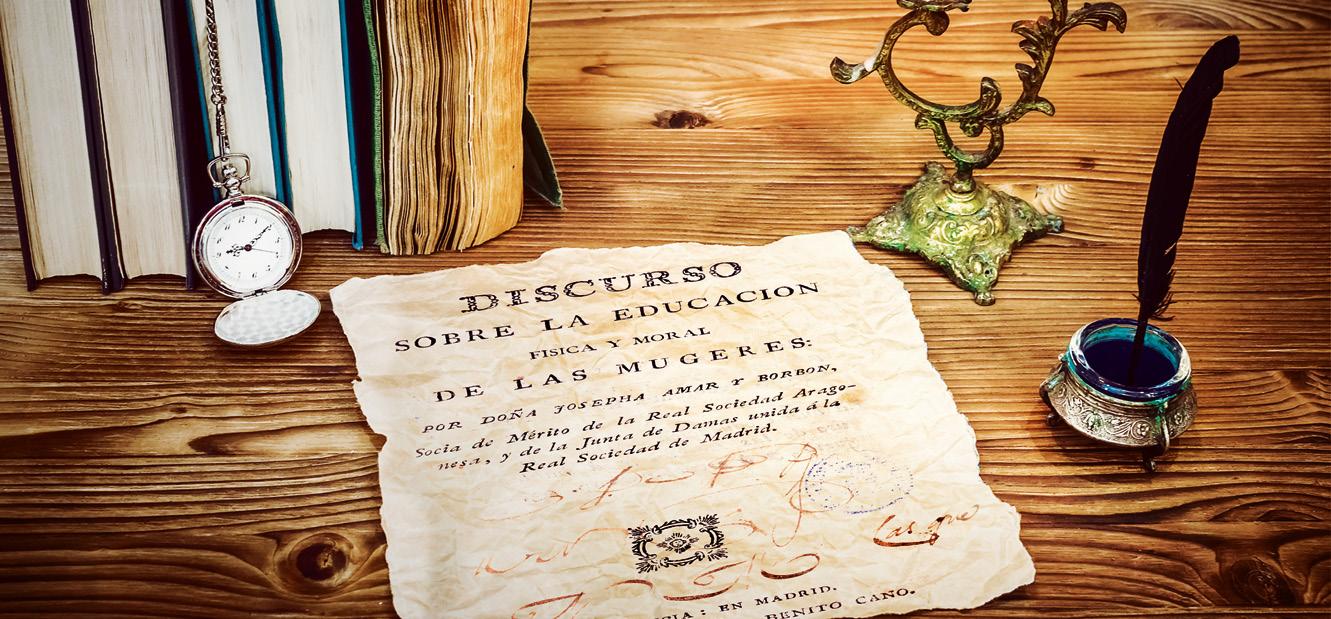 DISCURSO
SOBRE LA EDUCACION
FISICA Y MORAL
DE LAS MUGERES:
POR DOÑA JOSEPHA AMAR Y BORBON,
Socia de Mérito de la Real Sociedad Arago-
nesa, y de la Junta de Damas unida á la
Real Sociedad de Madrid.
EN MADRID.
BENITO CANO.